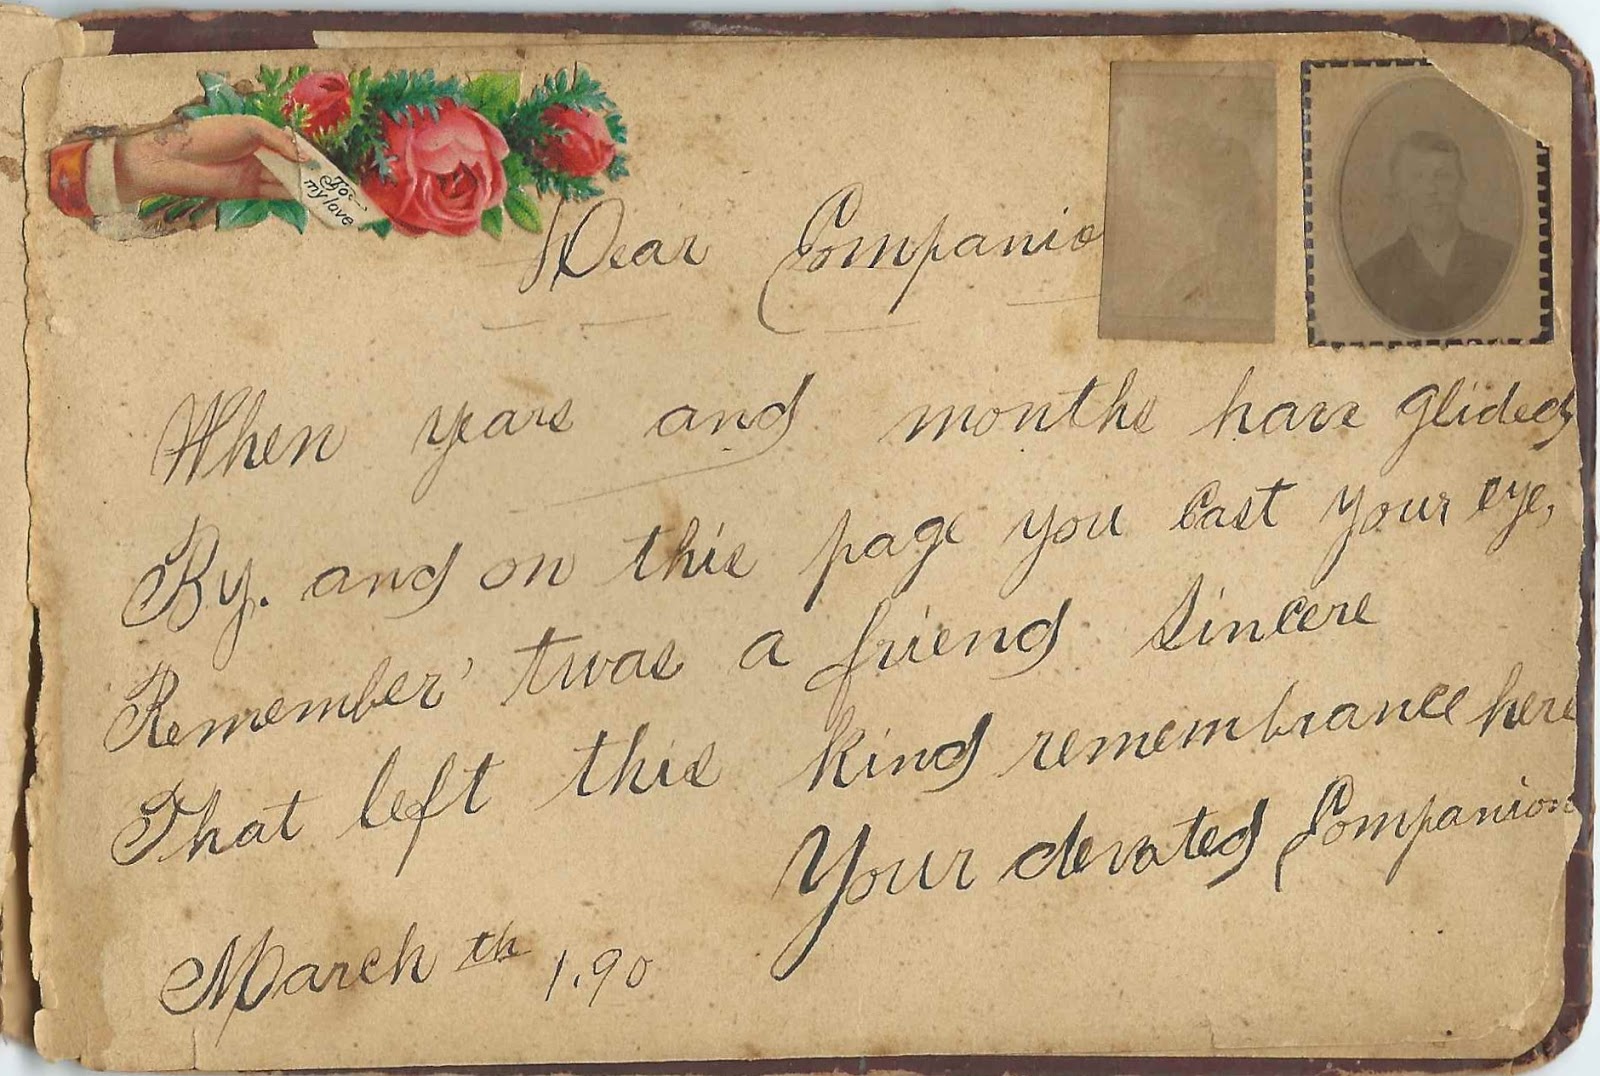 For
my love
Dear Companio
When years and months have glided
By. and on this page you Cast your eye,
Remember' twas a friend Sincere
That left this kind remembrance here
Your devoted Companion
March th 1.90